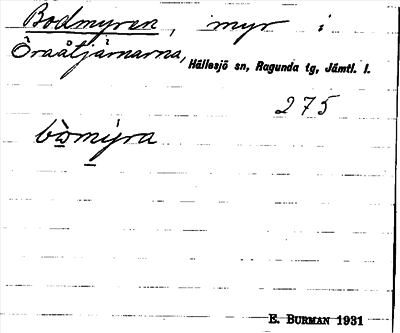 Bodmyren, myr i
Öraåtjärnarna, Hällesjö sn, Ragunda tg, Jämtl. l.
275
bòmýra
E. BURMAN 1931